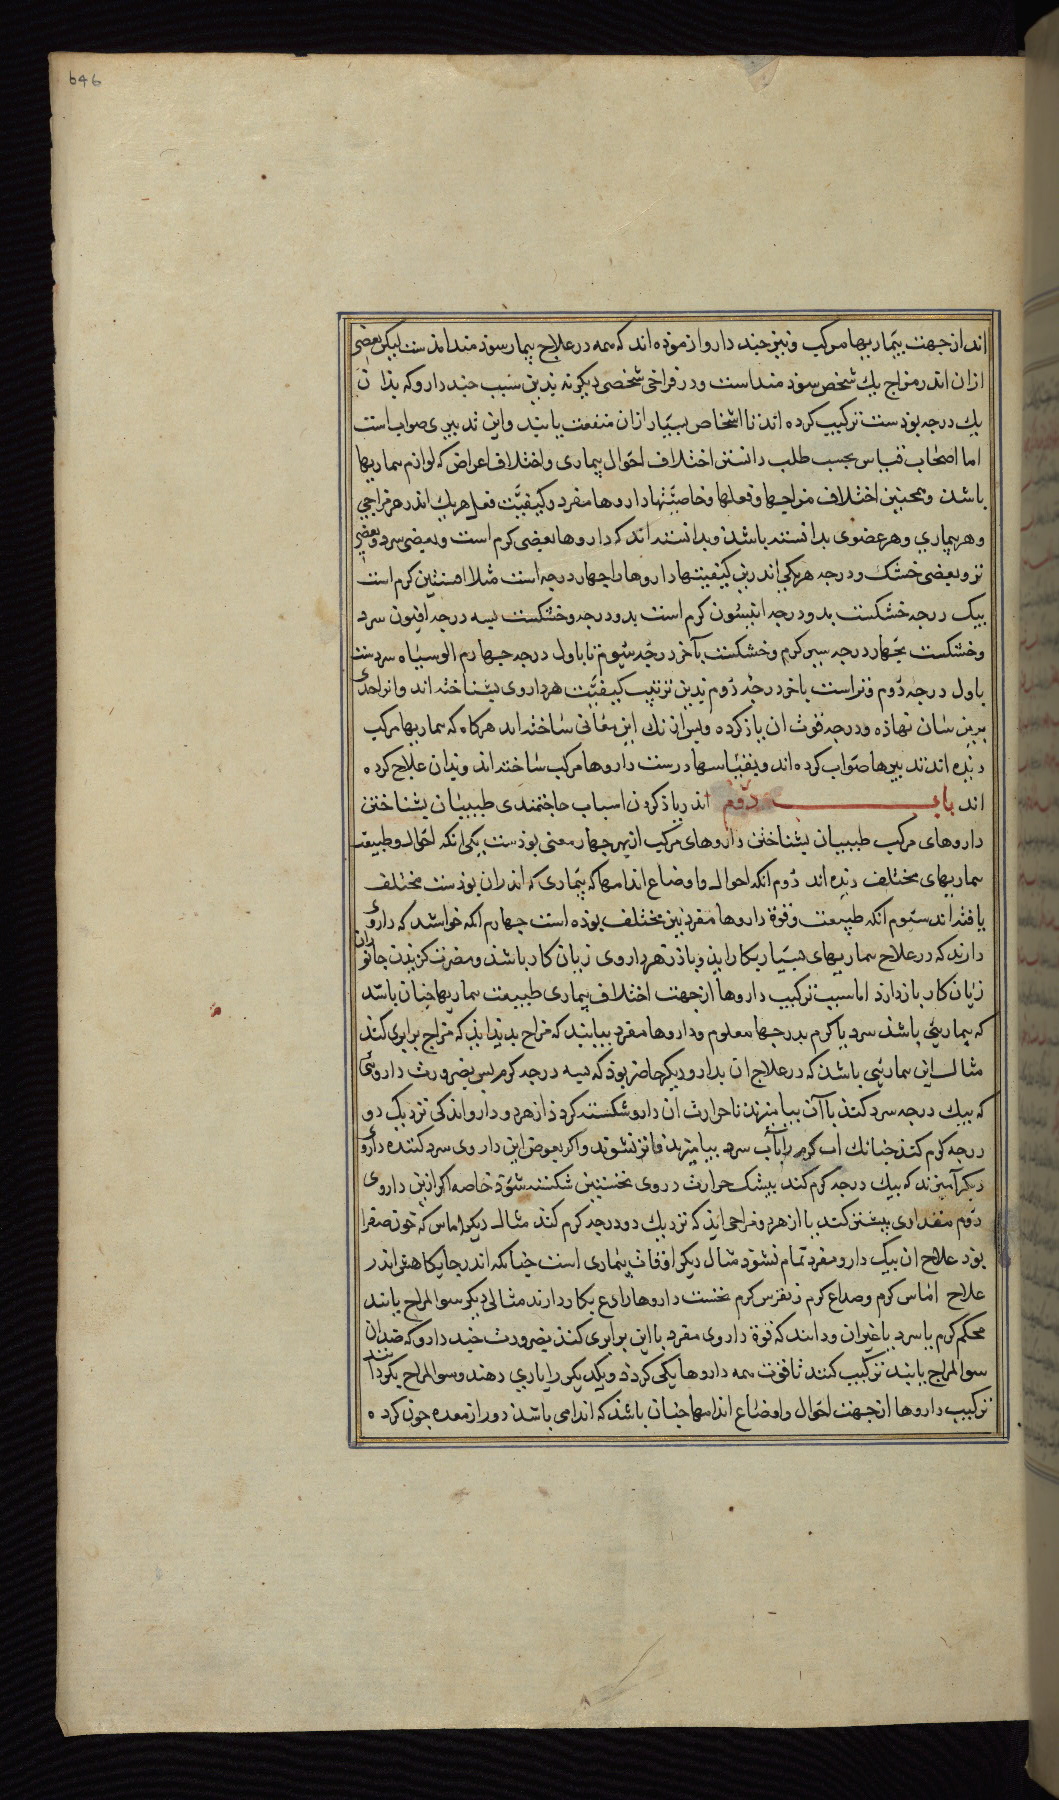 646
اند از جهت بیماریهاء مرکب و نیز چند دارو ازموذه اند که همه در علاج بیمار سوذمند امذست لیکن بعضی
ازان اندر مزاج یك شخص سوذمنداست ودر مزاجی شخصی دیکر نه بذین سبب چند دارو که بذان
یك درجه بوذست ترکیب کرده اند تا اشخاص بسیار ازان منفعت یابند واین تدبیری صواب است
اما اصحاب قیاس بحسب طلب دانستن اختلاف احوال بیماری و اختلاف اعراض که لوازم بیماریها
باشد و همچنین اختلاف مزاجها وفعلها وخاصیّتهاء داروها مفرد و کیفیّت فعل هریك اندر هر مزاجی
وهر بیماری وهر عضوی بدانسته باشند وبدانسته اند که داروها بعضی کرم است وبعضی سرد وبعضی
تر وبعضی خشك ودرجه هریکی اندرین کیفیتها داروها را چهار درجه است مثلا افسنتین کرم است
بیك درجه خشكست بدو درجه انیسون کرم است بدو درجه وخشكست بسه درجه افیون سرد
وخشكست بچهار درجه سیر کرم وخشكست بآخر درجهٔ سیوم تا باول درجه چهارم الو سیاه سردست
باول درجهٔ دوم وتراست باخر درجهٔ دوم بذین ترتیب کیفیّت هر داروی بشناخته اند وانرا حدّی
برین سان نهاذه ودرجه قوت ان یاذ کرده وپس ازانك این معانی شاخته اند هرکاه که بماریها مرکب
دیذه اند تدبیرها صواب کرده اند وبقیاسها درست داروها مرکب ساخته اند وبذان علاج کرده
اند باب دوم اندر یاذ کردن اسباب حاجتمندی طبیبان بشناختن
داروهای مرکب طبیبان بشناختن داروهای مرکب از بهر چهار معنی بوذست یکی انکه احوال وطبیعت
بماریهای مختلف دیذه اند دوم انکه احوال واوضاع اندامها که بیماری که اندران بوذست مختلف
یافته اند سیوم انکه طبیعت وقوة داروها مفرد نیز مختلف بوذه است چهارم انکه خواستند که داروی
دارند که در علاج بماریهای بسیار بکار ایذ وباذ زهر داروی زیان کار باشذ ومضرت کزیذن جانوران
زیان کار باز دارذ اما سبب ترکیب داروها از جهت اختلاف بیماری طبیعت بماریها چنان باشد
که بیماریئی باشذ سرد یا کرم بدرجها معلوم وداروها مفرد بیابند که مزاح بدید ایذ که مزاج برابری کند
مثال این بماریئی باشذ که در علاج ان بدارو دیکر حاضر بوذ که بسه درجه کرم پس بضرورت داروئی
که بیك درجه سرد کند باآن بیامیزند تا حرارت ان دارو شکسته کردذ از هر دو دارو اندکی نزدیك دو
درجه کرم کند چنانك اب کرم را باآب سرد بیامیزند فاتر شوذ واکر بعوض این داروی سرد کننده داروی
دیکر آمیزند که بیك درجه کرم کند بیشك حرارت دروی نخستین شکسته شوذ خاصه اکر ازین داروی
دوم مقداری بیشتر کنند تا از هر دو مزاجی ایذ که نزدیك دو درجه کرم کند مثال دیکر اماس که خون صفرا
بوذ علاج ان بیك دارو مفرد تمام نشوذ مثال دیکر اوقات بیماری است چنانکه اندر جایکاهش اندر
علاج اماس کرم وصداع کرم ونقرس کرم نخست داروها رادع بکار دارند مثالی دیکر سوالمزاج یابند
محکم کرم یا سرد یا غیر ان ودانند که قوة داروی مفرد باان برابری کند بضرورت چند دارو که ضد ان
سوالمزاج یابند ترکیب کنند تا قوت همه داروها یکی کردد ویکدیکر را یاری دهند وسوالمزاح بکردانند
ترکیب داروها از جهت احوال واوضاع اندامها چنان باشذ که اندامی باشذ دور از معده چون کرده